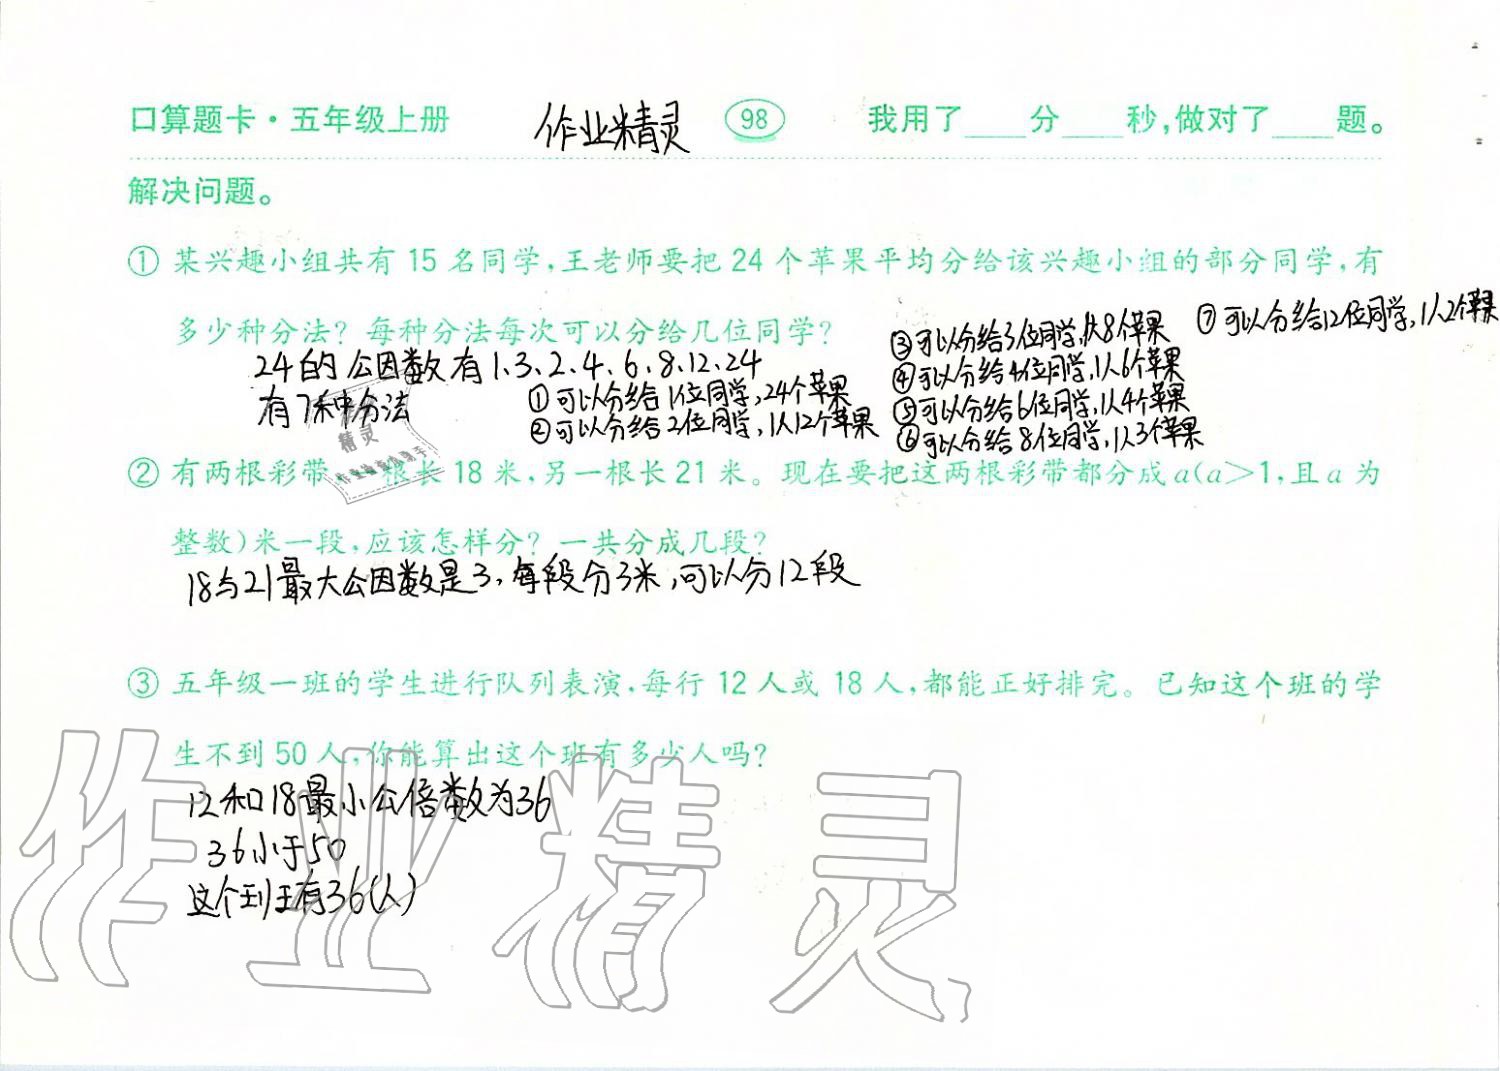 口算题卡·五年级上册 作业精灵 98 我用了____分____秒,做对了____题。
解决问题。
① 某兴趣小组共有 15 名同学,王老师要把 24 个苹果平均分给该兴趣小组的部分同学,有
多少种分法? 每种分法每次可以分给几位同学?
24的公因数有1、3、2、4、6、8、12、24
有7种分法
①可以分给1位同学,24个苹果
②可以分给2位同学,1人12个苹果
③可以分给3位同学,1人8个苹果
④可以分给4位同学,1人6个苹果
⑤可以分给6位同学,1人4个苹果
⑥可以分给8位同学,1人3个苹果
⑦可以分给12位同学,1人2个苹果
② 有两根彩带,一根长 18 米,另一根长 21 米。现在要把这两根彩带都分成 a(a>1,且 a 为
整数)米一段,应该怎样分? 一共分成几段?
18与21最大公因数是3,每段分3米,可以分12段
③ 五年级一班的学生进行队列表演,每行 12 人或 18 人,都能正好排完。已知这个班的学
生不到 50 人,你能算出这个班有多少人吗?
12和18最小公倍数为36
36小于50
这个班有36(人)
作业精灵